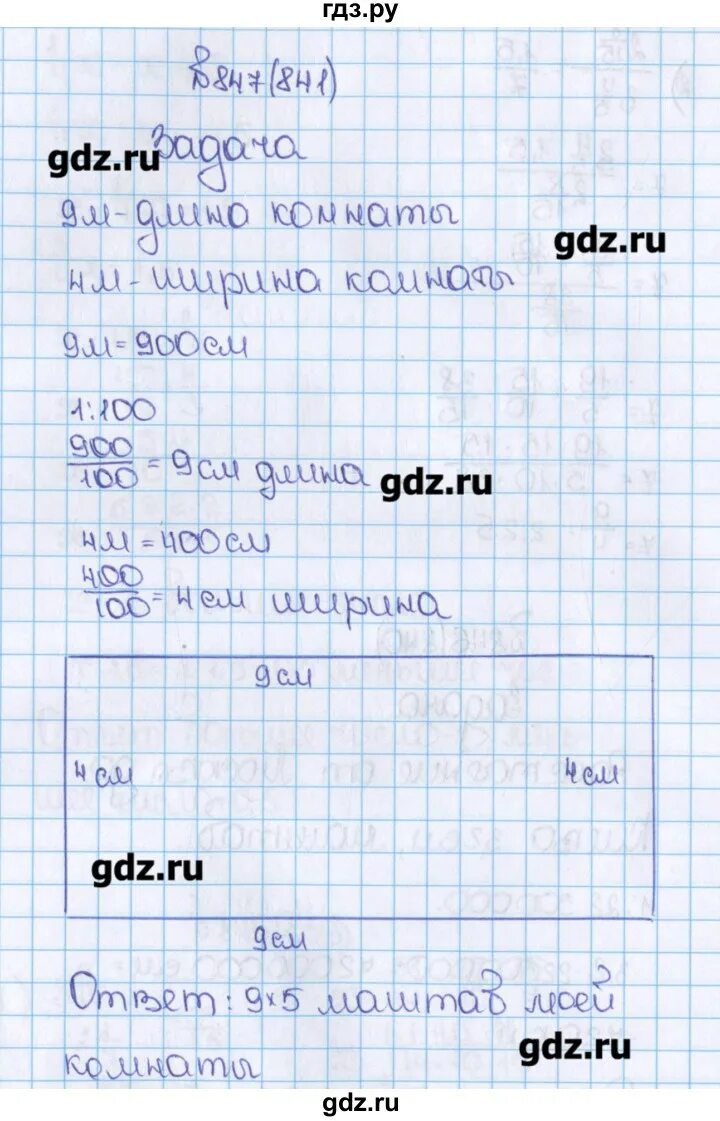 гдз.ру
№847(841)
Задача
gdz.ru
9м-длина комнаты
gdz.ru
4м-ширина комнаты
9м=900см
1:100
900
100
=9см длина
gdz.ru
4м=400см
400
100
=4см ширина
9см
4см
4см
gdz.ru
9см
Ответ: 9×5 маштаб моей
комнаты
gdz.ru
gdz.ru